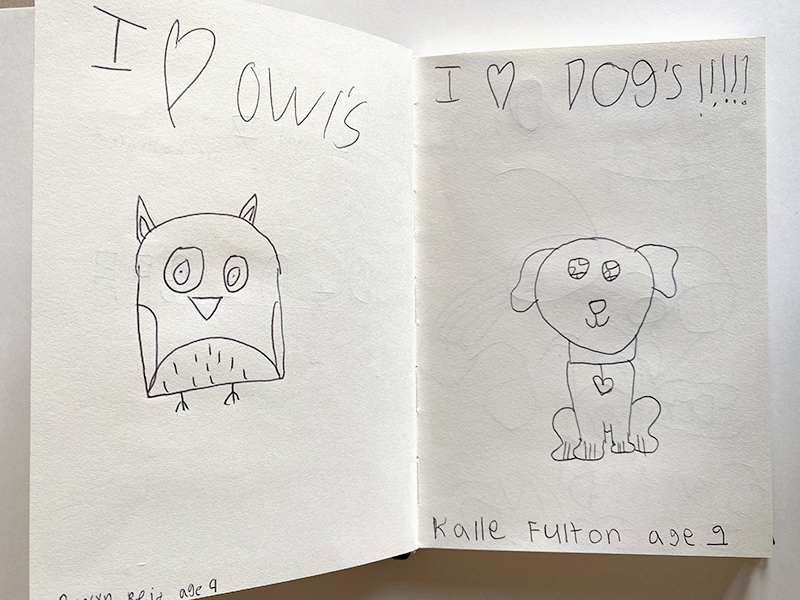 I ♡ owl's
age 9
I ♡ DOg's !!!!!
Kalle Fulton age 9